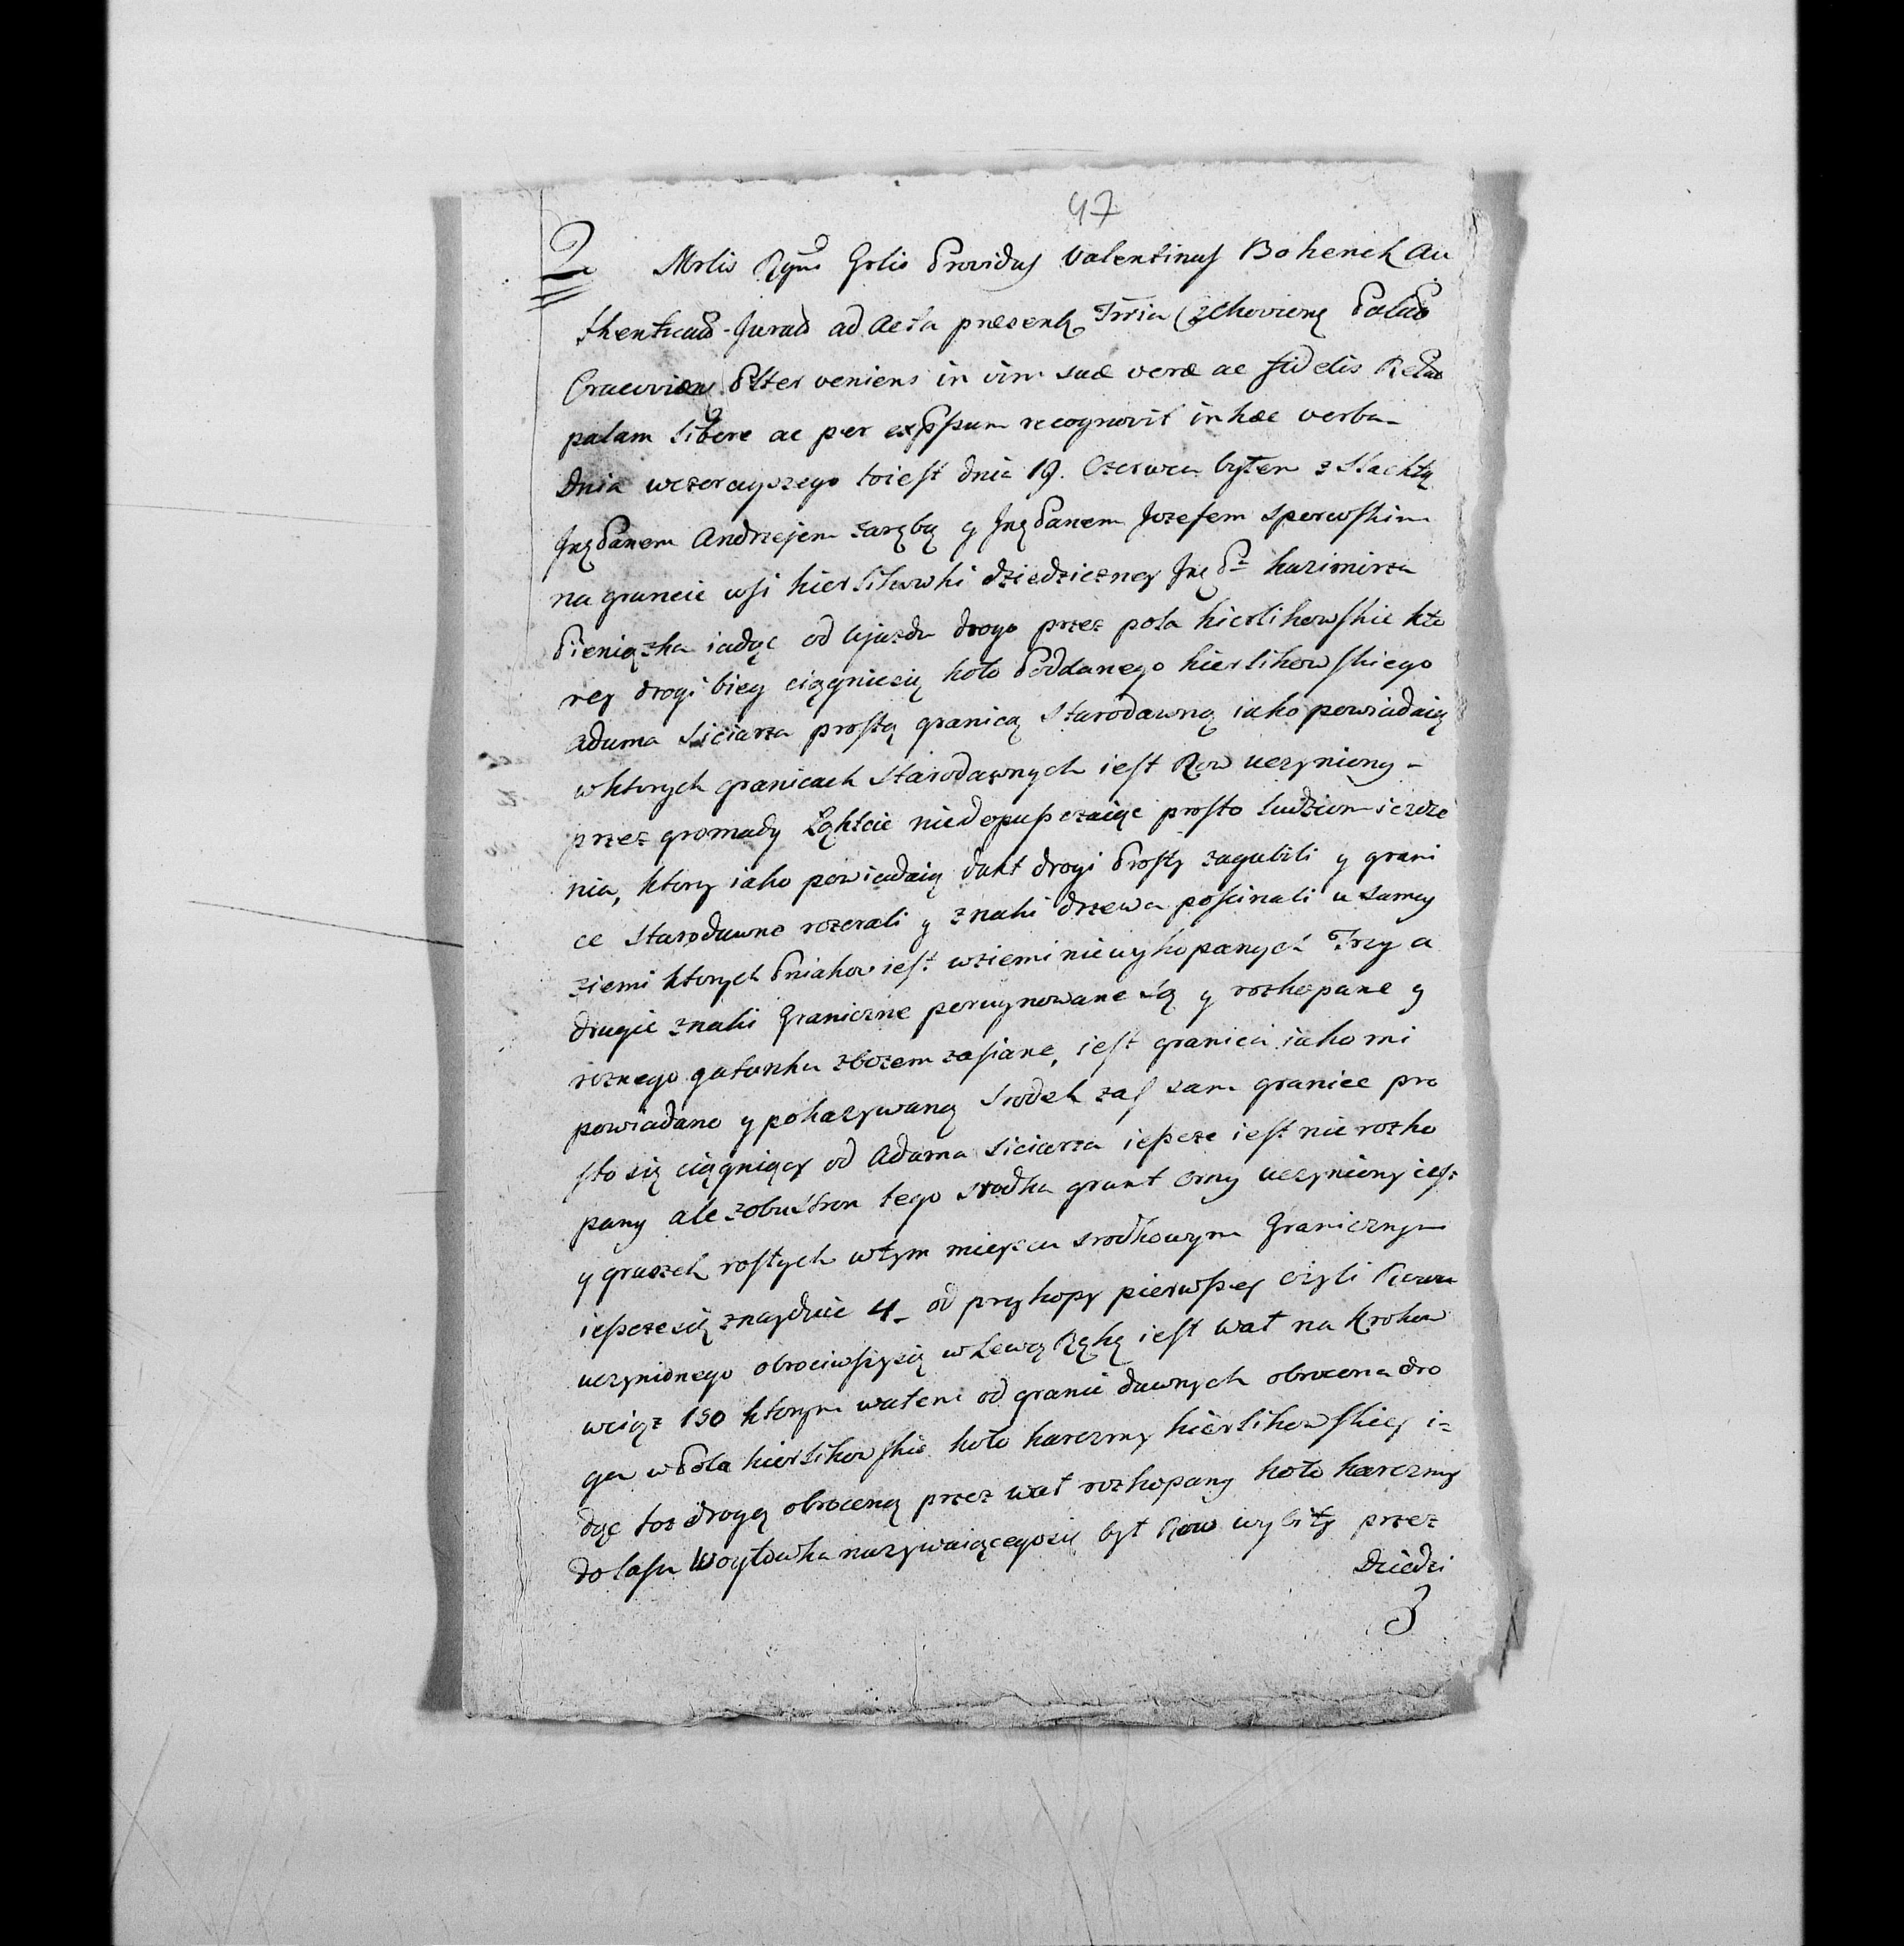 47
2
Mrlis Rgni Grlis Providus Valentinus Bohenek Au
thenticus Juratus ad Acta presentia Trria Czchoviens Palus
Cracoviens Pster veniens in vim suæ veræ ac fidelis Relnis
palam libere ac per exprssum recognovit in hæc verba
Dnia wczorayszego toiest dnia 19. Czerwca byłem z Slachtą
Jmę Panem Andrzejem Zarębą y Jmę Panem Jozefem Sperowskim
na gruncie wsi Kierlikowki dziedziczney Jmę Pa Kazimirza
Pieniążka iadąc od Ujazdu drogo przez pola Kierlikowskie kto
rey drogi bieg ciągniesię koło Poddanego Kierlikowskiego
Adama Siciarza prostą granicą Starodawną iako powiadaią
w ktorych granicach Starodawnych iest Row uczyniony -
przez gromady Łąkcie niedopuszczaiąc prosto ludziom iezdze
nia, ktory iako powiadaią dukt drogi Prosty zagubili y grani
ce Starodawne rozorali y znaki drzewa poscinali u samey
ziemi ktorych Pniakow iest w ziemi niewykopanych Trzy a
drugie znaki Graniczne poruynowane są y rozkopane y
roznego gatunku zbożem zasiane, iest granica iako mi
powiadano y pokazywaną Srodek zas sam granice pro
sto się ciągniący od Adama Siciarza ieszcze iest nie rozko
pany ale z obu stron tego srodka grunt orny uczyniony iest
y gruszek rostych w tym mieyscu srodkowym Granicznym
ieszczesię znayduie 4_ od przykopy pierwszey czyli Rowu
uczynionego obrociwszysię w Lewą Rękę iest wał na Krokow
wciąż 150 ktorym wałem od granic dawnych obrocona dro
ga w Pola Kierlikowskie koło karczmy Kierlikowskiey i=
dąc toż drogą obroconą przez wał rozkopany koło karczmy
do lasu Woytowka nazywaiącegosię był Row wybity przez
Dziedzi
3